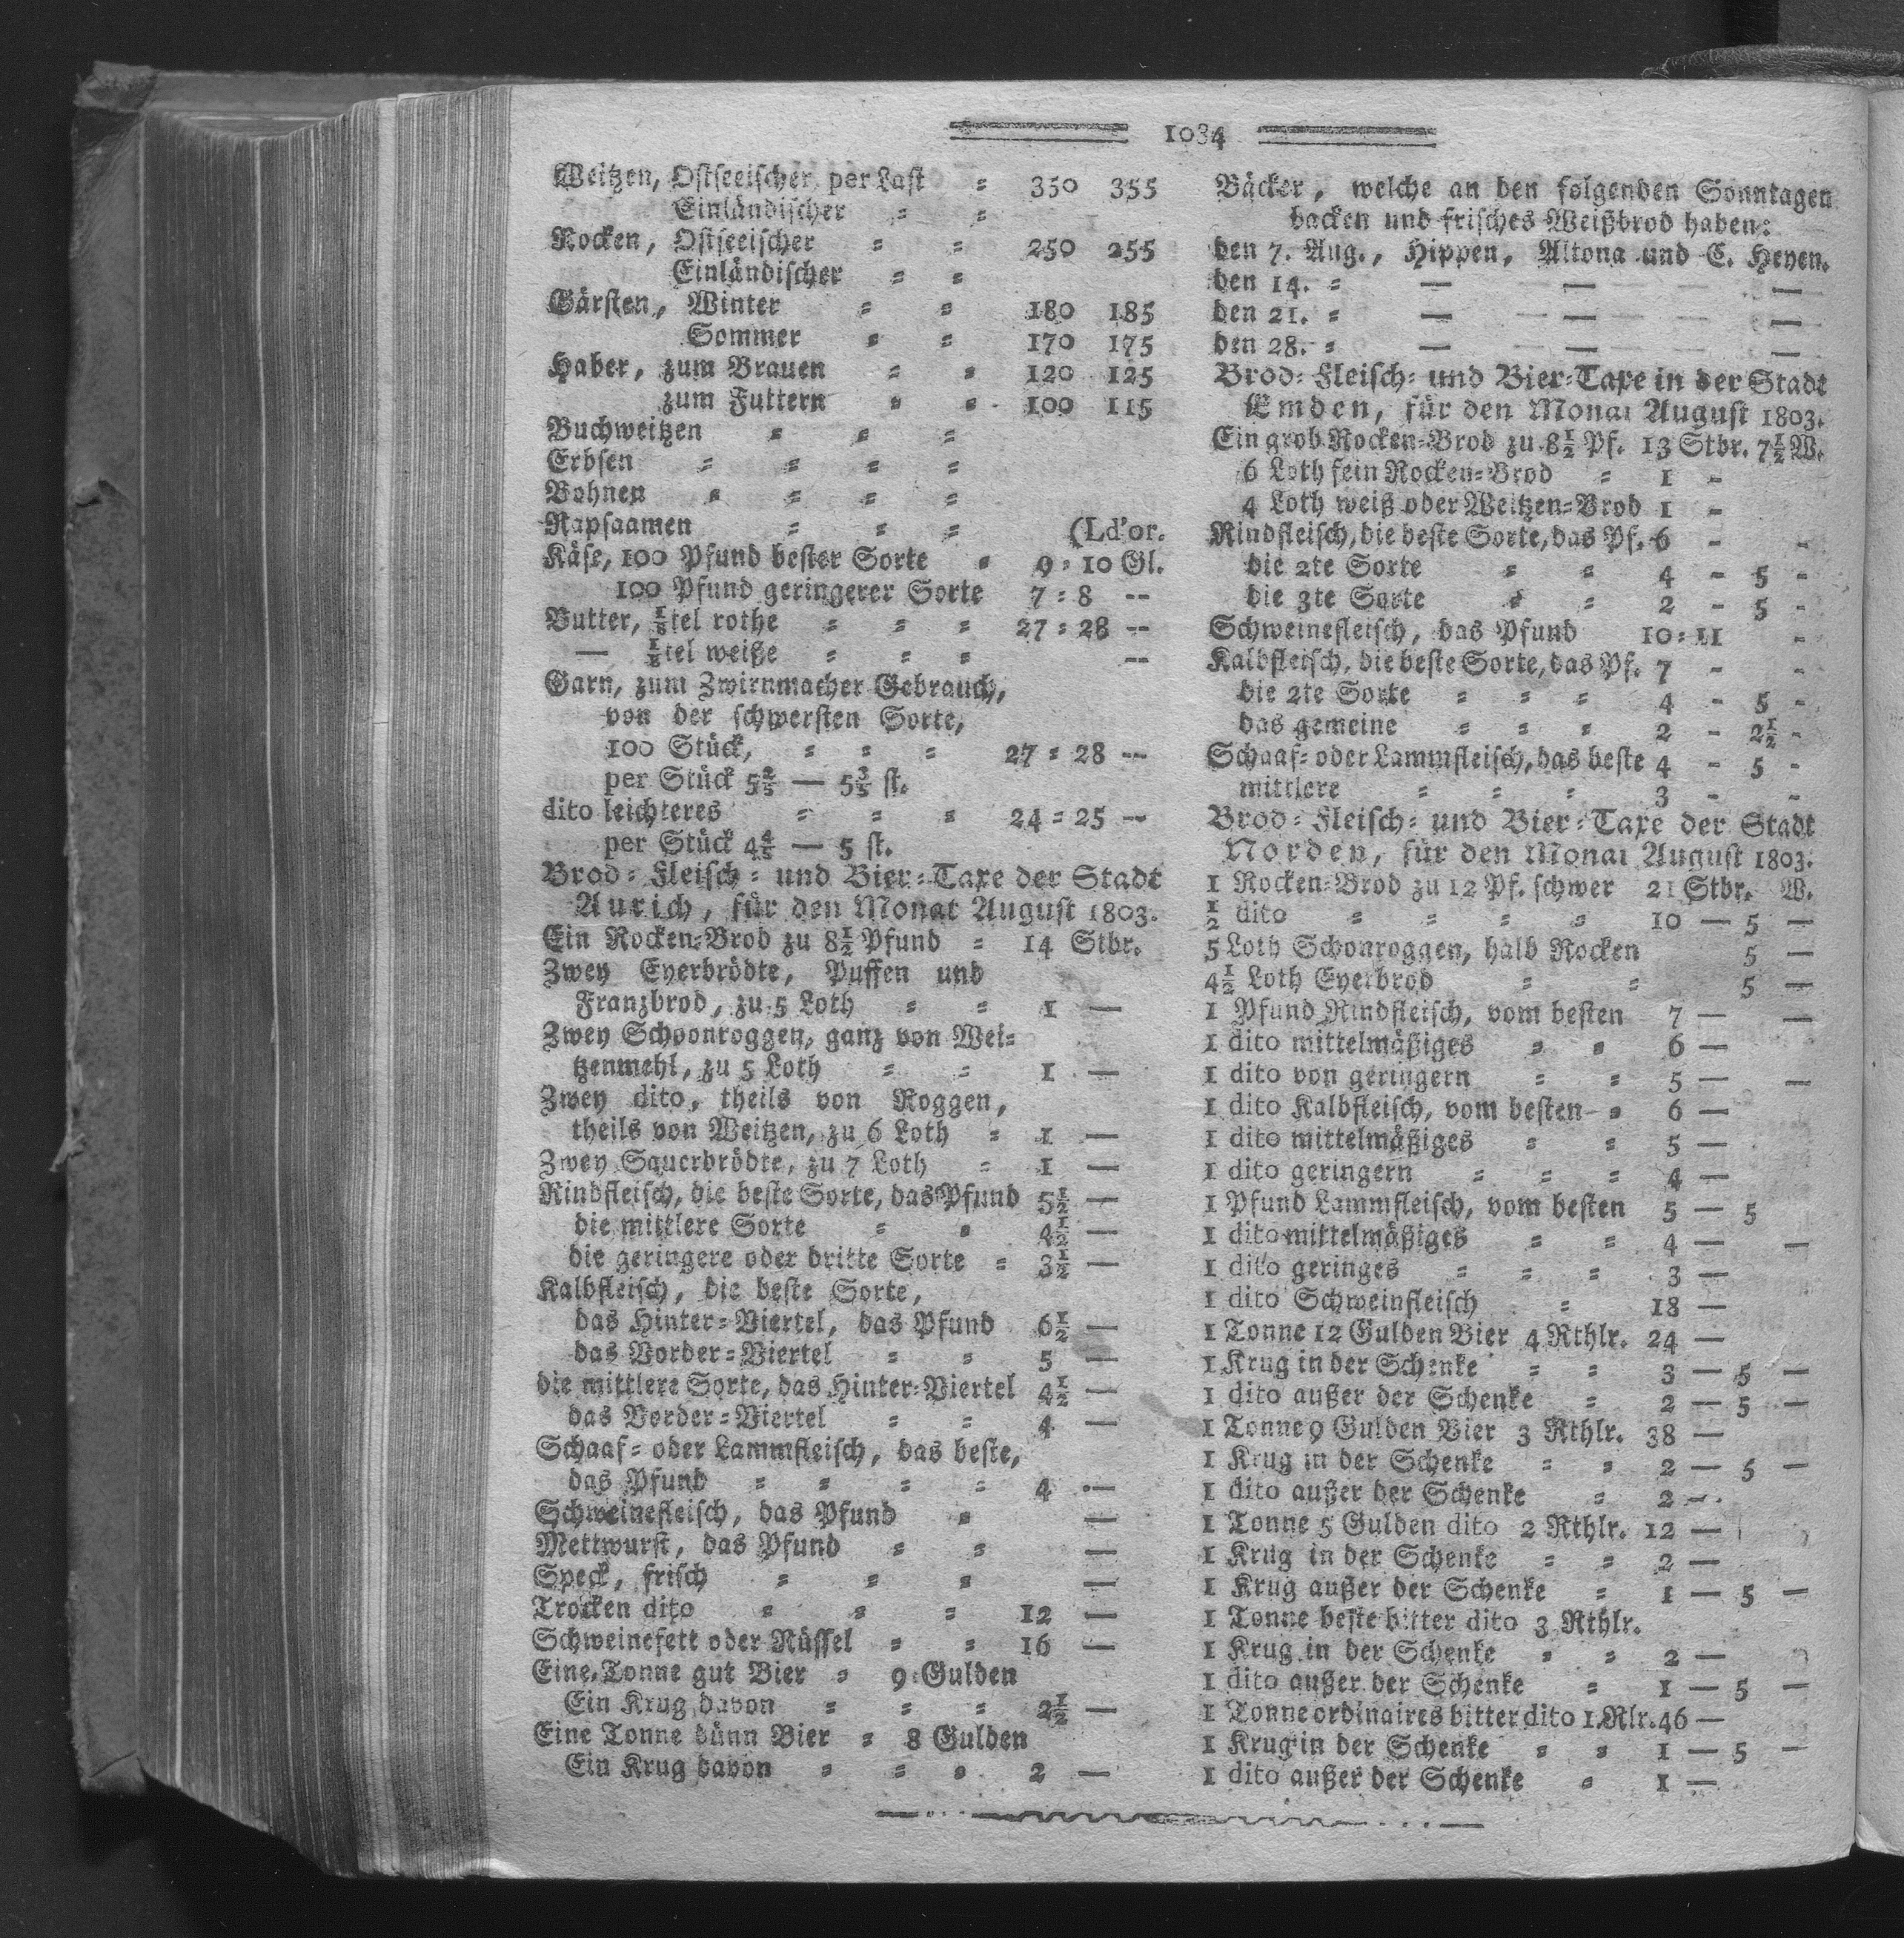 1034
Weitzen, Ostseeischer, per Last = 350 355
Einländischer = =
Rocken, Ostseeischer = = 250 255
Einländischer = =
Gärsten, Winter = = 180 185
Sommer = = 170 175
Haber, zum Brauen = = 120 125
zum Futtern = = 100 115
Buchweitzen = = =
Erbsen = = = =
Bohnen = = = =
Rapsaamen = = = (Ld'or.
Käse, 100 Pfund bester Sorte = 9 = 10 Gl.
100 Pfund geringerer Sorte 7 = 8 --
Butter, 1/8tel rothe = = = 27 = 28 --
— 1/8tel weiße = = = --
Garn, zum Zwirnmacher Gebrauch,
von der schwersten Sorte,
100 Stück, = = = 27 = 28 --
per Stück 5 2/5 — 5 3/5 st.
dito leichteres = = = 24 = 25 --
per Stück 4 4/5 — 5 st.
Brod = Fleisch = und Bier = Taxe der Stadt
Aurich, für den Monat August 1803.
Ein Rocken=Brod zu 8 1/2 Pfund = 14 Stbr.
Zwey Eyerbrödte, Puffen und
Franzbrod, zu 5 Loth = = 1 —
Zwey Schoonroggen, ganz von Wei=
tzenmehl, zu 5 Loth = = 1 —
Zwey dito, theils von Roggen,
theils von Weitzen, zu 6 Loth = 1 —
Zwey Sauerbrödte, zu 7 Loth = 1 —
Rindfleisch, die beste Sorte, das Pfund 5 1/2 —
die mittlere Sorte = = 4 1/2 —
die geringere oder dritte Sorte = 3 1/2 —
Kalbfleisch, die beste Sorte,
das Hinter=Viertel, das Pfund 6 1/2 —
das Vorder=Viertel = = 5 —
die mittlere Sorte, das Hinter=Viertel 4 1/2 —
das Vorder=Viertel = = 4 —
Schaaf= oder Lammfleisch, das beste,
das Pfund = = = = 4 —
Schweinefleisch, das Pfund = —
Mettwurst, das Pfund = = —
Speck, frisch = = = —
Trocken dito = = = 12 —
Schweinefett oder Rüssel = = 16 —
Eine Tonne gut Bier = 9 Gulden
Ein Krug davon = = = 2 1/2 —
Eine Tonne dünn Bier = 8 Gulden
Ein Krug davon = = = 2 —
Bäcker, welche an den folgenden Sonntagen
backen und frisches Weißbrod haben:
den 7. Aug., Hippen, Altona und C. Heyen.
den 14. = — — —
den 21. = — — —
den 28. = — — —
Brod= Fleisch= und Bier=Taxe in der Stadt
Emden, für den Monat August 1803.
Ein grob Rocken=Brod zu 8 1/2 Pf. 13 Stbr. 7 1/2 W.
6 Loth fein Rocken=Brod = 1 -
4 Loth weiß oder Weitzen=Brod 1 -
Rindfleisch, die beste Sorte, das Pf. 6 - -
die 2te Sorte = = 4 - 5 -
die 3te Sorte = = 2 - 5 -
Schweinefleisch, das Pfund 10 = 11 -
Kalbfleisch, die beste Sorte, das Pf. 7 - -
die 2te Sorte = = = 4 - 5 -
das gemeine = = = 2 - 2 1/2 -
Schaaf= oder Lammfleisch, das beste 4 - 5 -
mittlere = = = 3 - -
Brod = Fleisch = und Bier = Taxe der Stadt
Norden, für den Monat August 1803.
1 Rocken=Brod zu 12 Pf. schwer 21 Stbr. W.
1/2 dito = = = = 10 — 5 —
5 Loth Schonroggen, halb Rocken 5 —
4 1/2 Loth Eyerbrod = = 5 —
1 Pfund Rindfleisch, vom besten 7 — —
1 dito mittelmäßiges = = 6 —
1 dito von geringern = = 5 — —
1 dito Kalbfleisch, vom besten = 6 —
1 dito mittelmäßiges = = 5 —
1 dito geringern = = = 4 —
1 Pfund Lammfleisch, vom besten 5 — 5
1 dito mittelmäßiges = = 4 — —
1 dito geringes = = = 3 —
1 dito Schweinfleisch = 18 —
1 Tonne 12 Gulden Bier 4 Rthlr. 24 —
1 Krug in der Schenke = = 3 — 5 —
1 dito außer der Schenke = 2 — 5 —
1 Tonne 9 Gulden Bier 3 Rthlr. 38 —
1 Krug in der Schenke = = 2 — 5 —
1 dito außer der Schenke = 2 —
1 Tonne 5 Gulden dito 2 Rthlr. 12 —
1 Krug in der Schenke = = 2 —
1 Krug außer der Schenke = 1 — 5 —
1 Tonne beste bitter dito 3 Rthlr.
1 Krug in der Schenke = = 2 —
1 dito außer der Schenke = 1 — 5 —
1 Tonne ordinaires bitter dito 1 Rlr. 46 —
1 Krug in der Schenke = = 1 — 5 —
1 dito außer der Schenke = 1 —